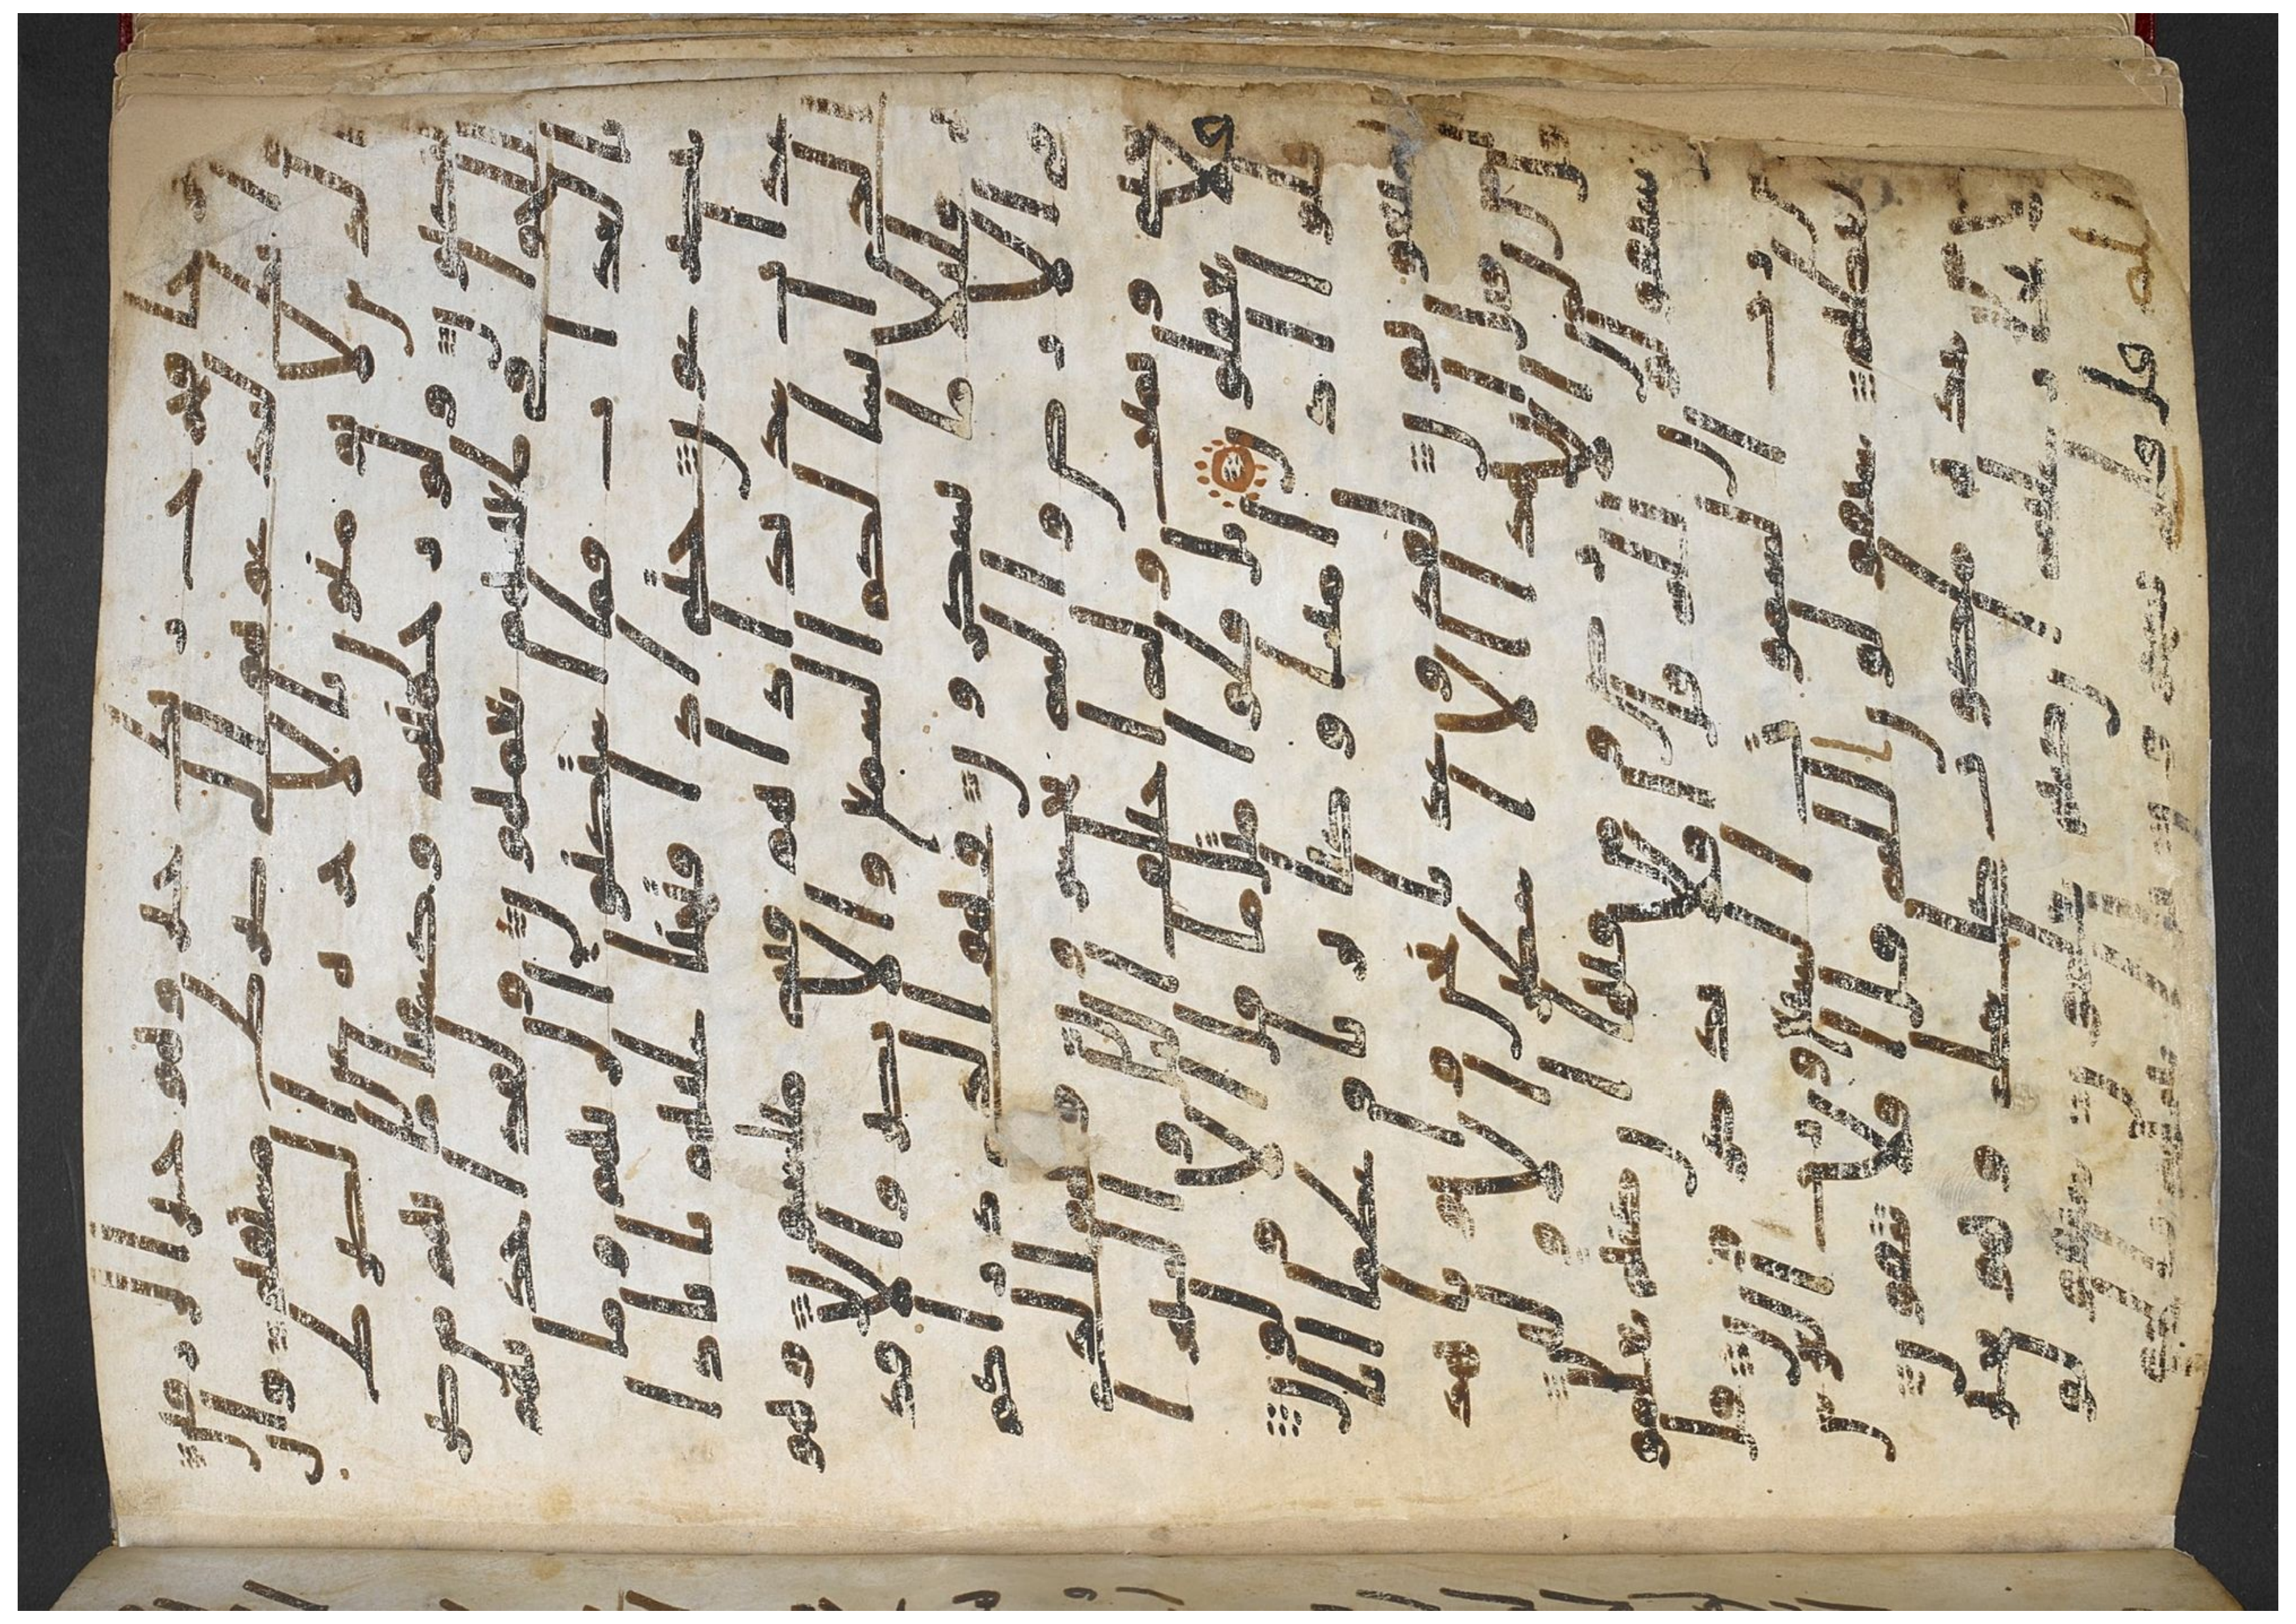 خرجا فخرج ربك خير وهو خير الرزقين
وانك لتدعوهم الى صرط مستقيم وان
الذين لا يومنون بالاخرة عن الصرط
لنكبون ولو رحمنهم وكشفنا ما بهم من ضر
للجوا في طغينهم يعمهون ولقد اخذنهم
بالعذاب فما استكانوا لربهم وما
يتضرعون حتى اذا فتحنا عليهم بابا ذا
عذاب شديد اذا هم فيه مبلسون وهو
الذي انشا لكم السمع والابصر والافد
ة قليلا ما تشكرون وهو الذي ذراكم
في الارض واليه تحشرون وهو الذي يحي
ويميت وله اختلف اليل والنهر ا
فلا تعقلون بل قالوا مثل ما قال الاولو
ن قالوا اذا متنا وكنا تربا وعظما انا
لمبعوثون لقد وعدنا نحن واباونا هذ
ا من قبل ان هذا الا اسطير الاولين
قل لمن الارض ومن فيها ان كنتم تعلمو
ن سيقولون لله قل افلا تذكرون قل
من رب السموت السبع ورب العر
ش العظيم سيقولون الله قل افلا تتقون
قل من بيده ملكوت كل شي وهو يجير
ولا يجار عليه ان كنتم تعلمون سيقو
لون الله قل فانى تسحرون بل اتينهم